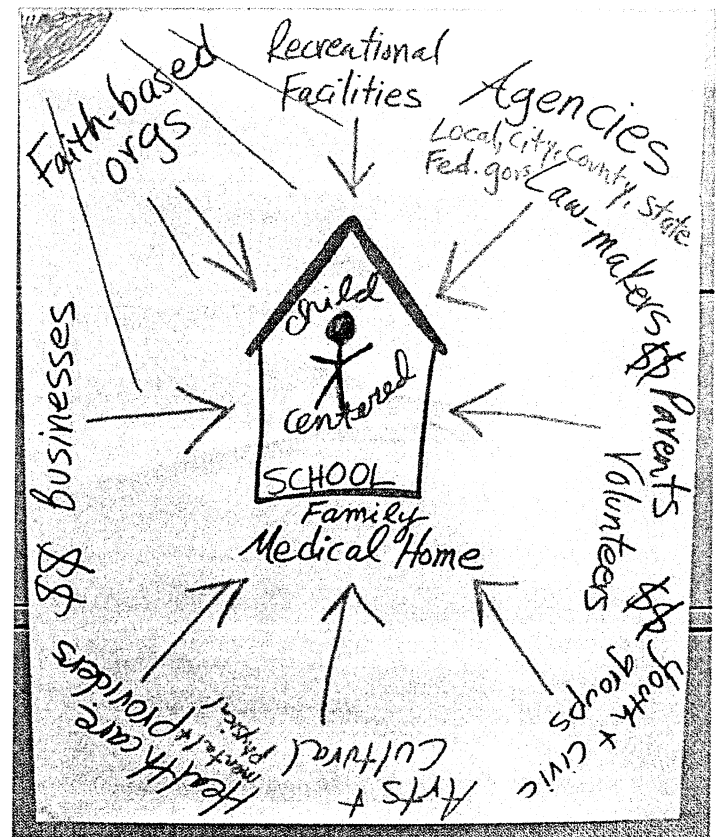 Recreational
Facilities
Agencies
Local, City, County, State
Fed. govs
Law-makers
$$
Parents
Volunteers
$$
Youth + Civic
groups
Arts +
Cultural
Health care
providers
mental +
physical
$$
businesses
Faith-based
orgs
child
centered
SCHOOL
Family
Medical Home